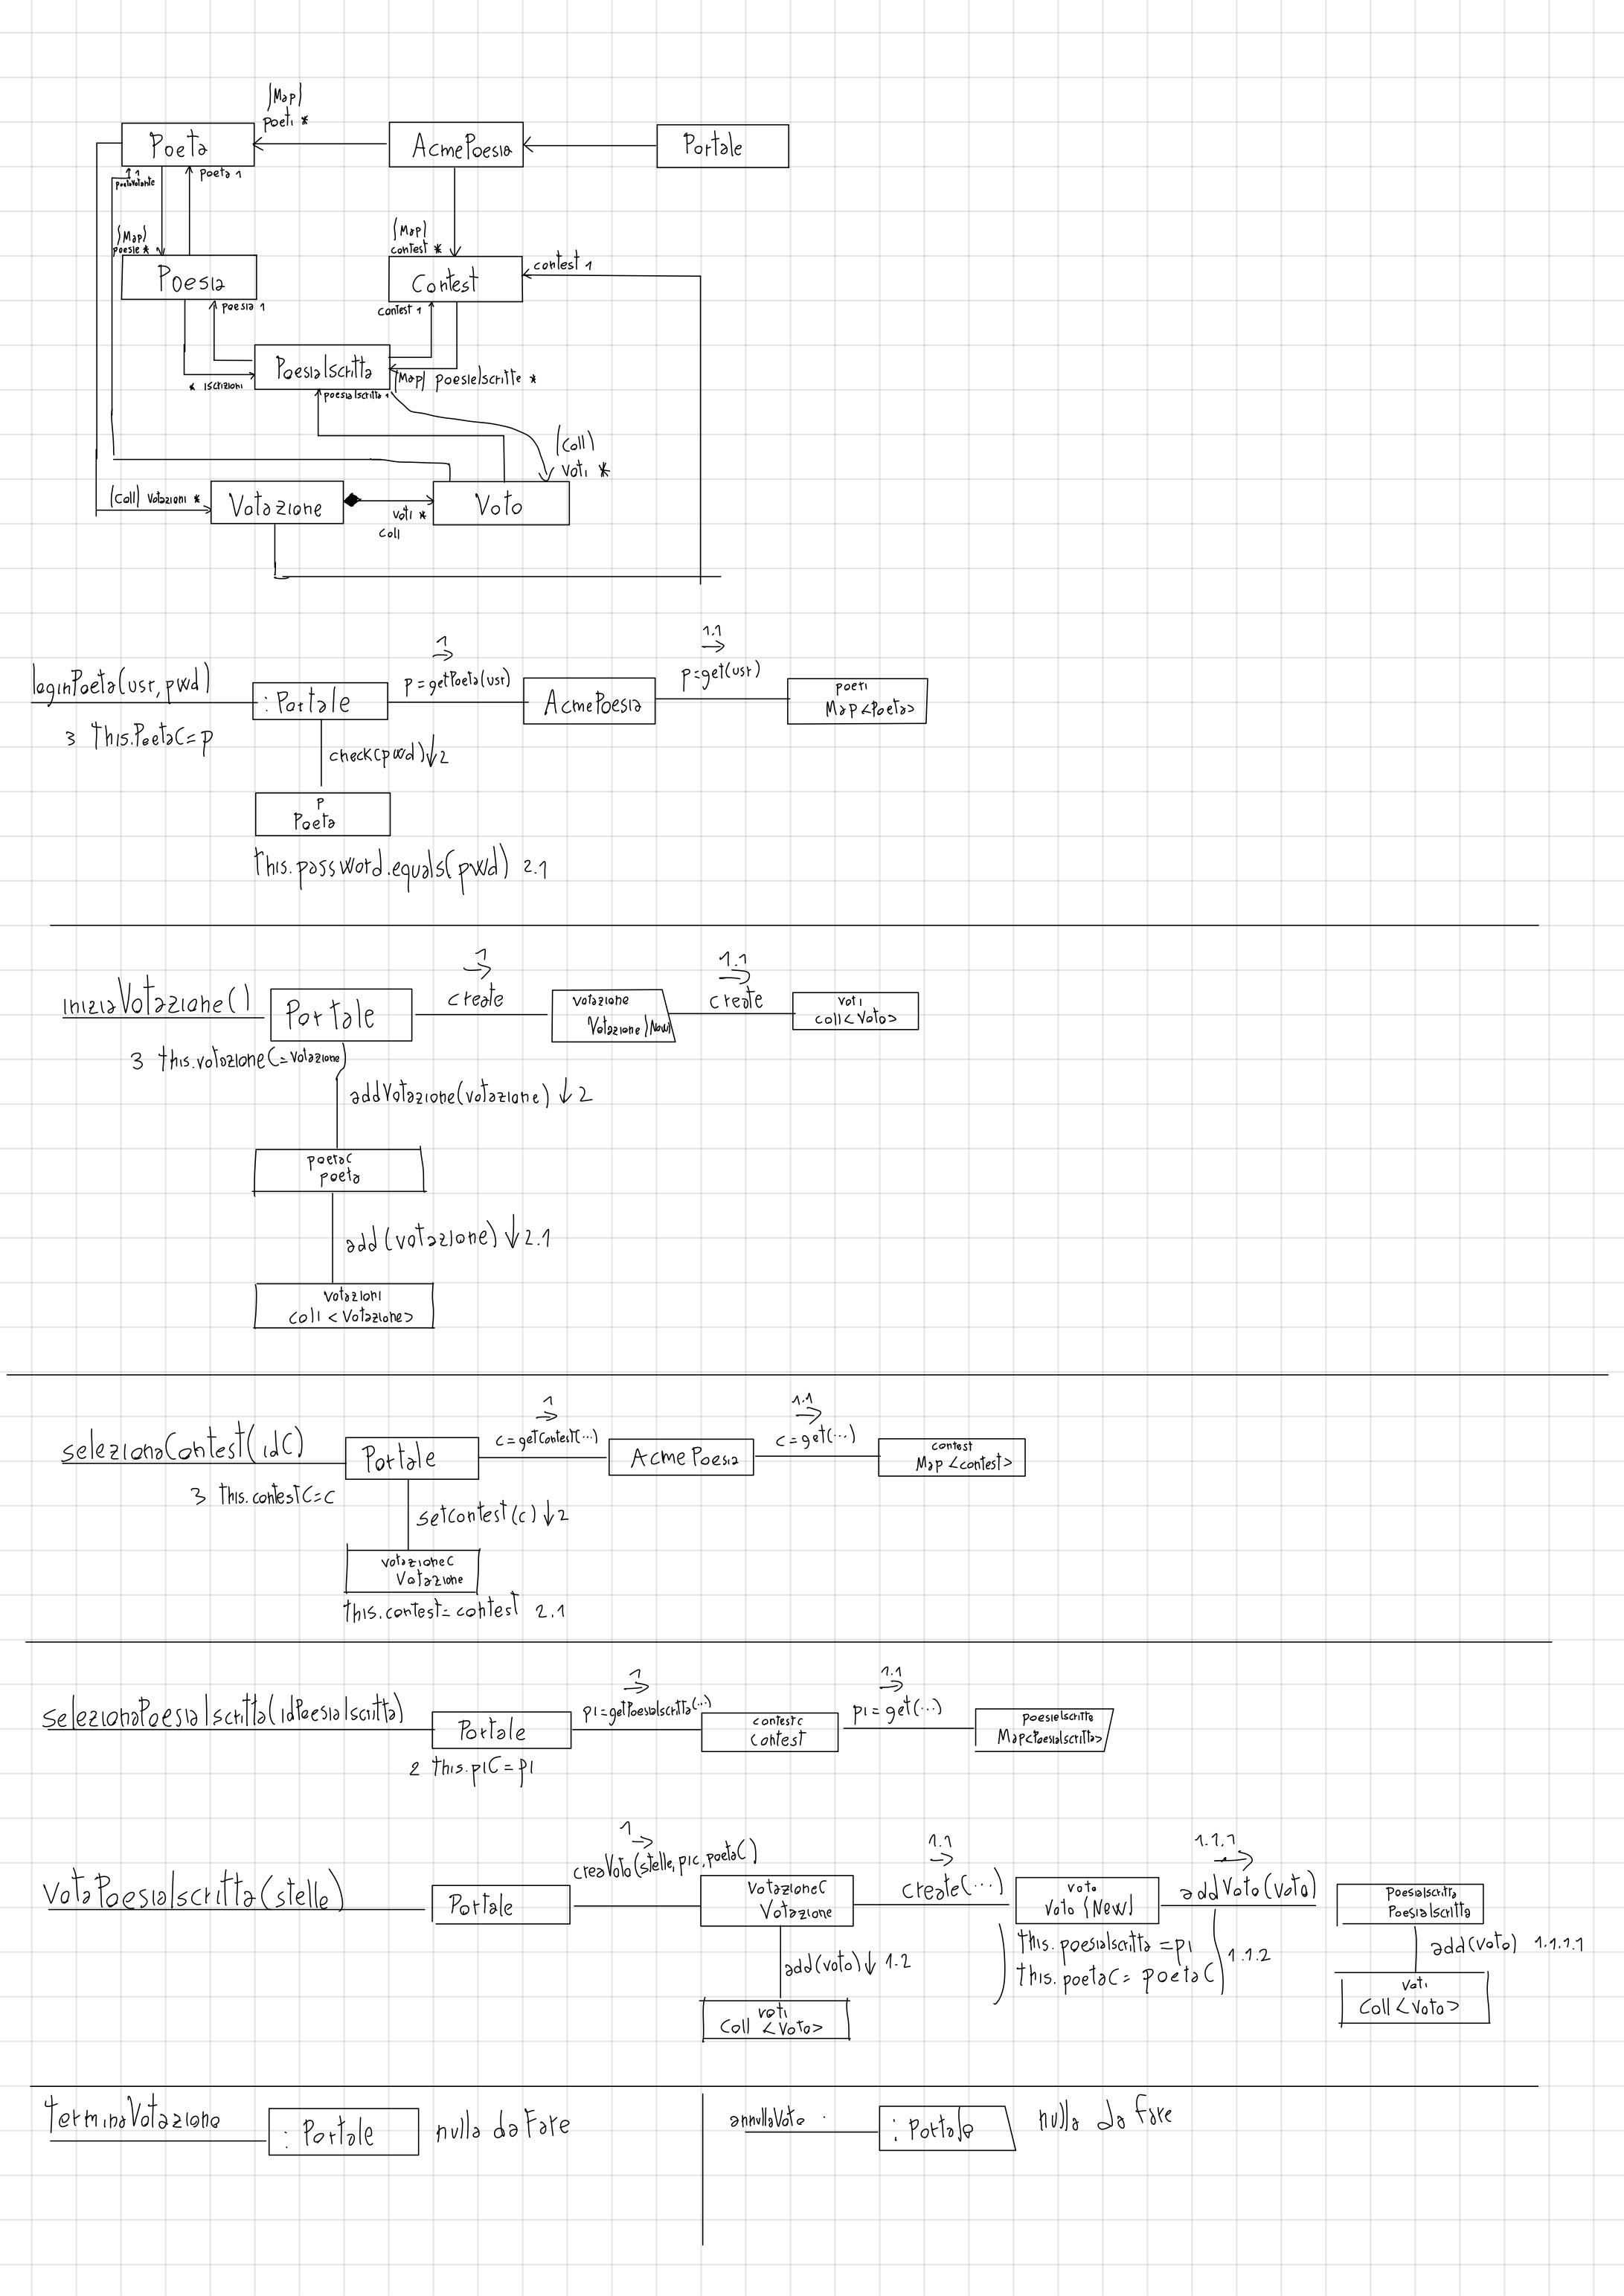 {Map}
poeti *
Poeta
AcmePoesia
Portale
1
poetaVotante
poeta 1
{Map}
poesie *
{Map}
contest *
contest 1
Poesia
Contest
poesia 1
contest 1
PoesiaIscritta
* iscrizioni
{Map} poesieIscritte *
poesiaIscritta 1
{Coll}
voti *
{Coll} votazioni *
Votazione
Voto
voti *
coll
loginPoeta(usr, pwd)
: Portale
1
p=getPoeta(usr)
AcmePoesia
1.1
p=get(usr)
poeti
Map <Poeta>
3 this.PoetaC=p
check(pwd) ↓ 2
p
Poeta
this.password.equals(pwd) 2.1
iniziaVotazione()
Portale
1
create
votazione
Votazione {New}
1.1
create
voti
coll <Voto>
3 this.votazioneC=votazione
addVotazione(votazione) ↓ 2
poetaC
poeta
add(votazione) ↓ 2.1
votazioni
coll <Votazione>
selezionaContest(idC)
Portale
1
c=getContest(...)
AcmePoesia
1.1
c=get(...)
contest
Map <contest>
3 this.contestC=c
setContest(c) ↓ 2
votazioneC
Votazione
this.contest=contest 2.1
selezionaPoesiaIscritta(idPoesiaIscritta)
Portale
1
pi=getPoesiaIscritta(...)
contestC
Contest
1.1
pi=get(...)
poesieIscritte
Map<PoesiaIscritta>
2 this.piC=pi
votaPoesiaIscritta(stelle)
Portale
1
creaVoto(stelle, piC, poetaC)
VotazioneC
Votazione
1.1
create(...)
voto
Voto {New}
1.1.1
addVoto(voto)
poesiaIscritta
PoesiaIscritta
add(voto) ↓ 1.2
this.poesiaIscritta=pi
this.poetaC=poetaC
1.1.2
add(voto) 1.1.1.1
voti
Coll <Voto>
voti
Coll <Voto>
terminaVotazione
: Portale
nulla da fare
annullaVoto
: Portale
nulla da fare